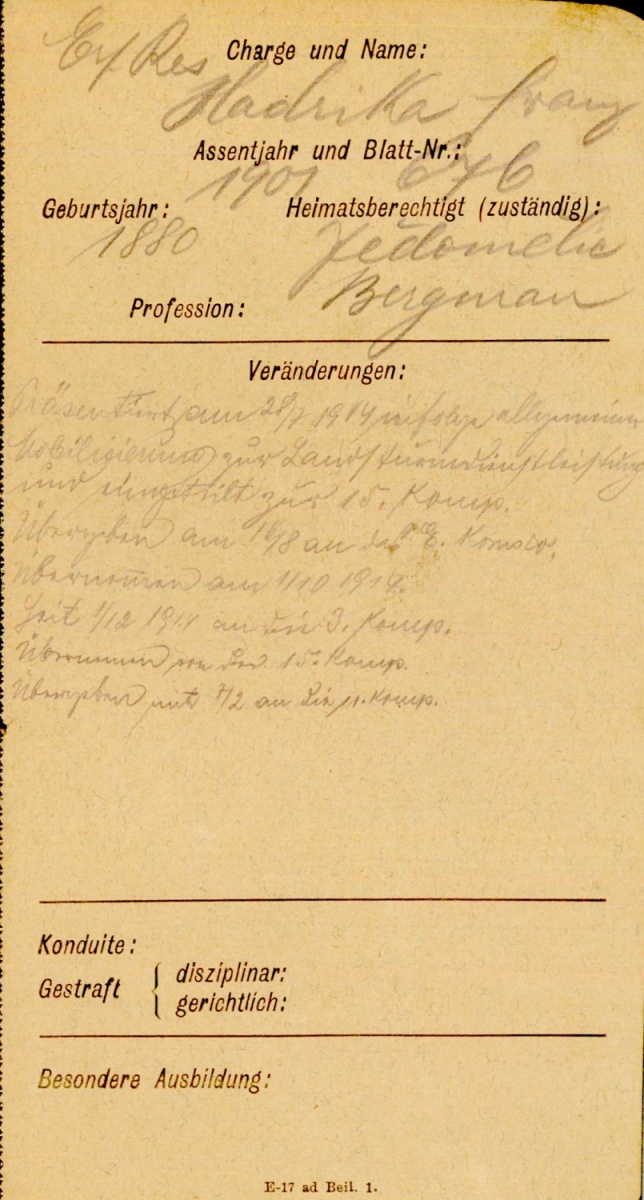 Charge und Name:
Ers Res
Hadrika Franz
Assentjahr und Blatt-Nr.:
1901
Geburtsjahr: Heimatsberechtigt (zuständig):
1880 Jedomelic
Profession: Bergman
Veränderungen:
Präsentiert am 28/7 1914 infolge allgemeiner
Mobilisierung zur Landsturmdienstleistung
und eingeteilt zur 15. Komp.
Übergeben am 16/8 an das E. Komdo.
Übernommen am 1/10 1914.
Seit 1/12 1914 an die 3. Komp.
Übernommen von der 15. Komp.
Übergeben mit 7/2 an die 11. Komp.
Konduite:
Gestraft { disziplinar:
gerichtlich:
Besondere Ausbildung:
E-17 ad Beil. 1.